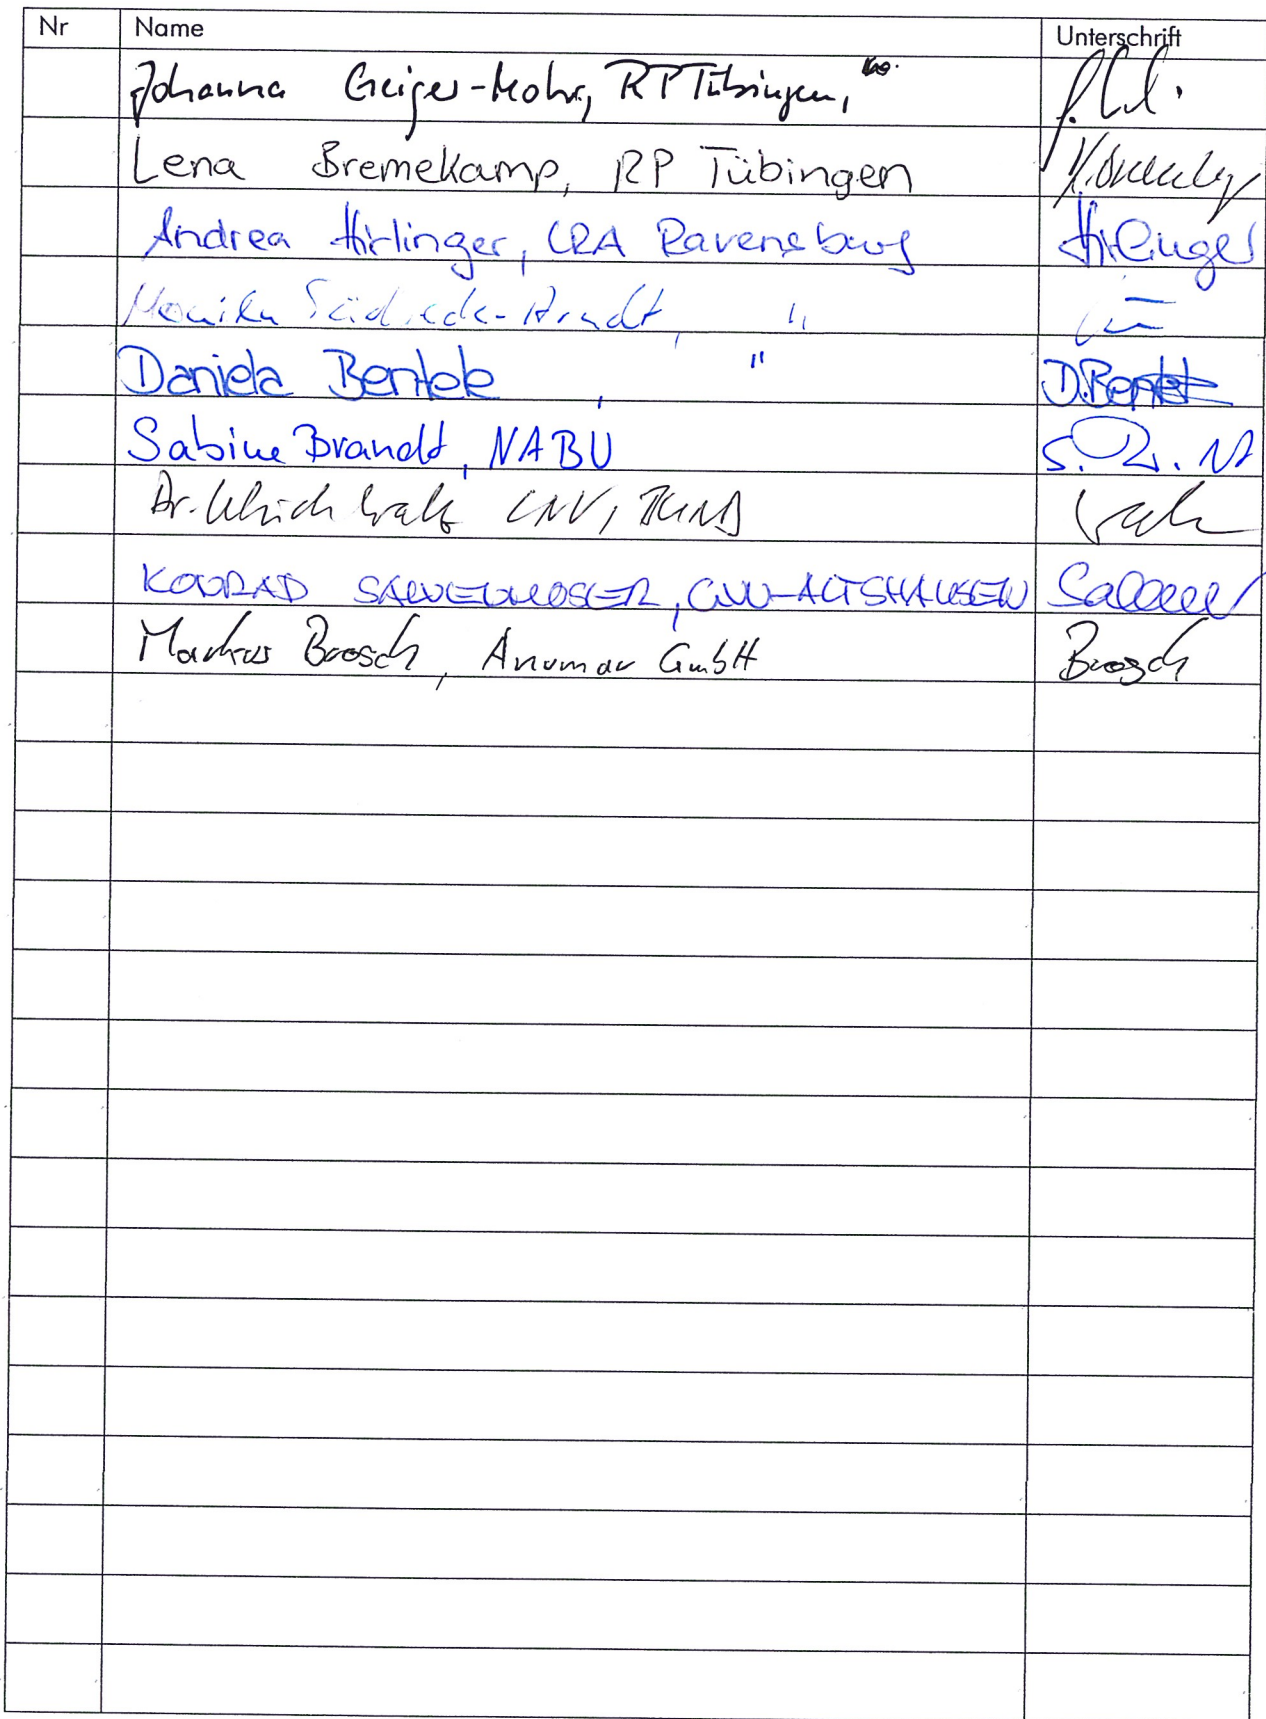 Nr Name Unterschrift
Johanna Geiger-Mohr, RP Tübingen,
Lena Bremekamp, RP Tübingen
Andrea Hirlinger, LRA Ravensburg Hirlinger
Monika "
Daniela Bentele, " D.Bentele
Sabine Brandt, NABU
Dr. Ulrich Walz LNV,
KONRAD ALTSHAUSEN
Markus Brosch, Anumar GmbH Brosch